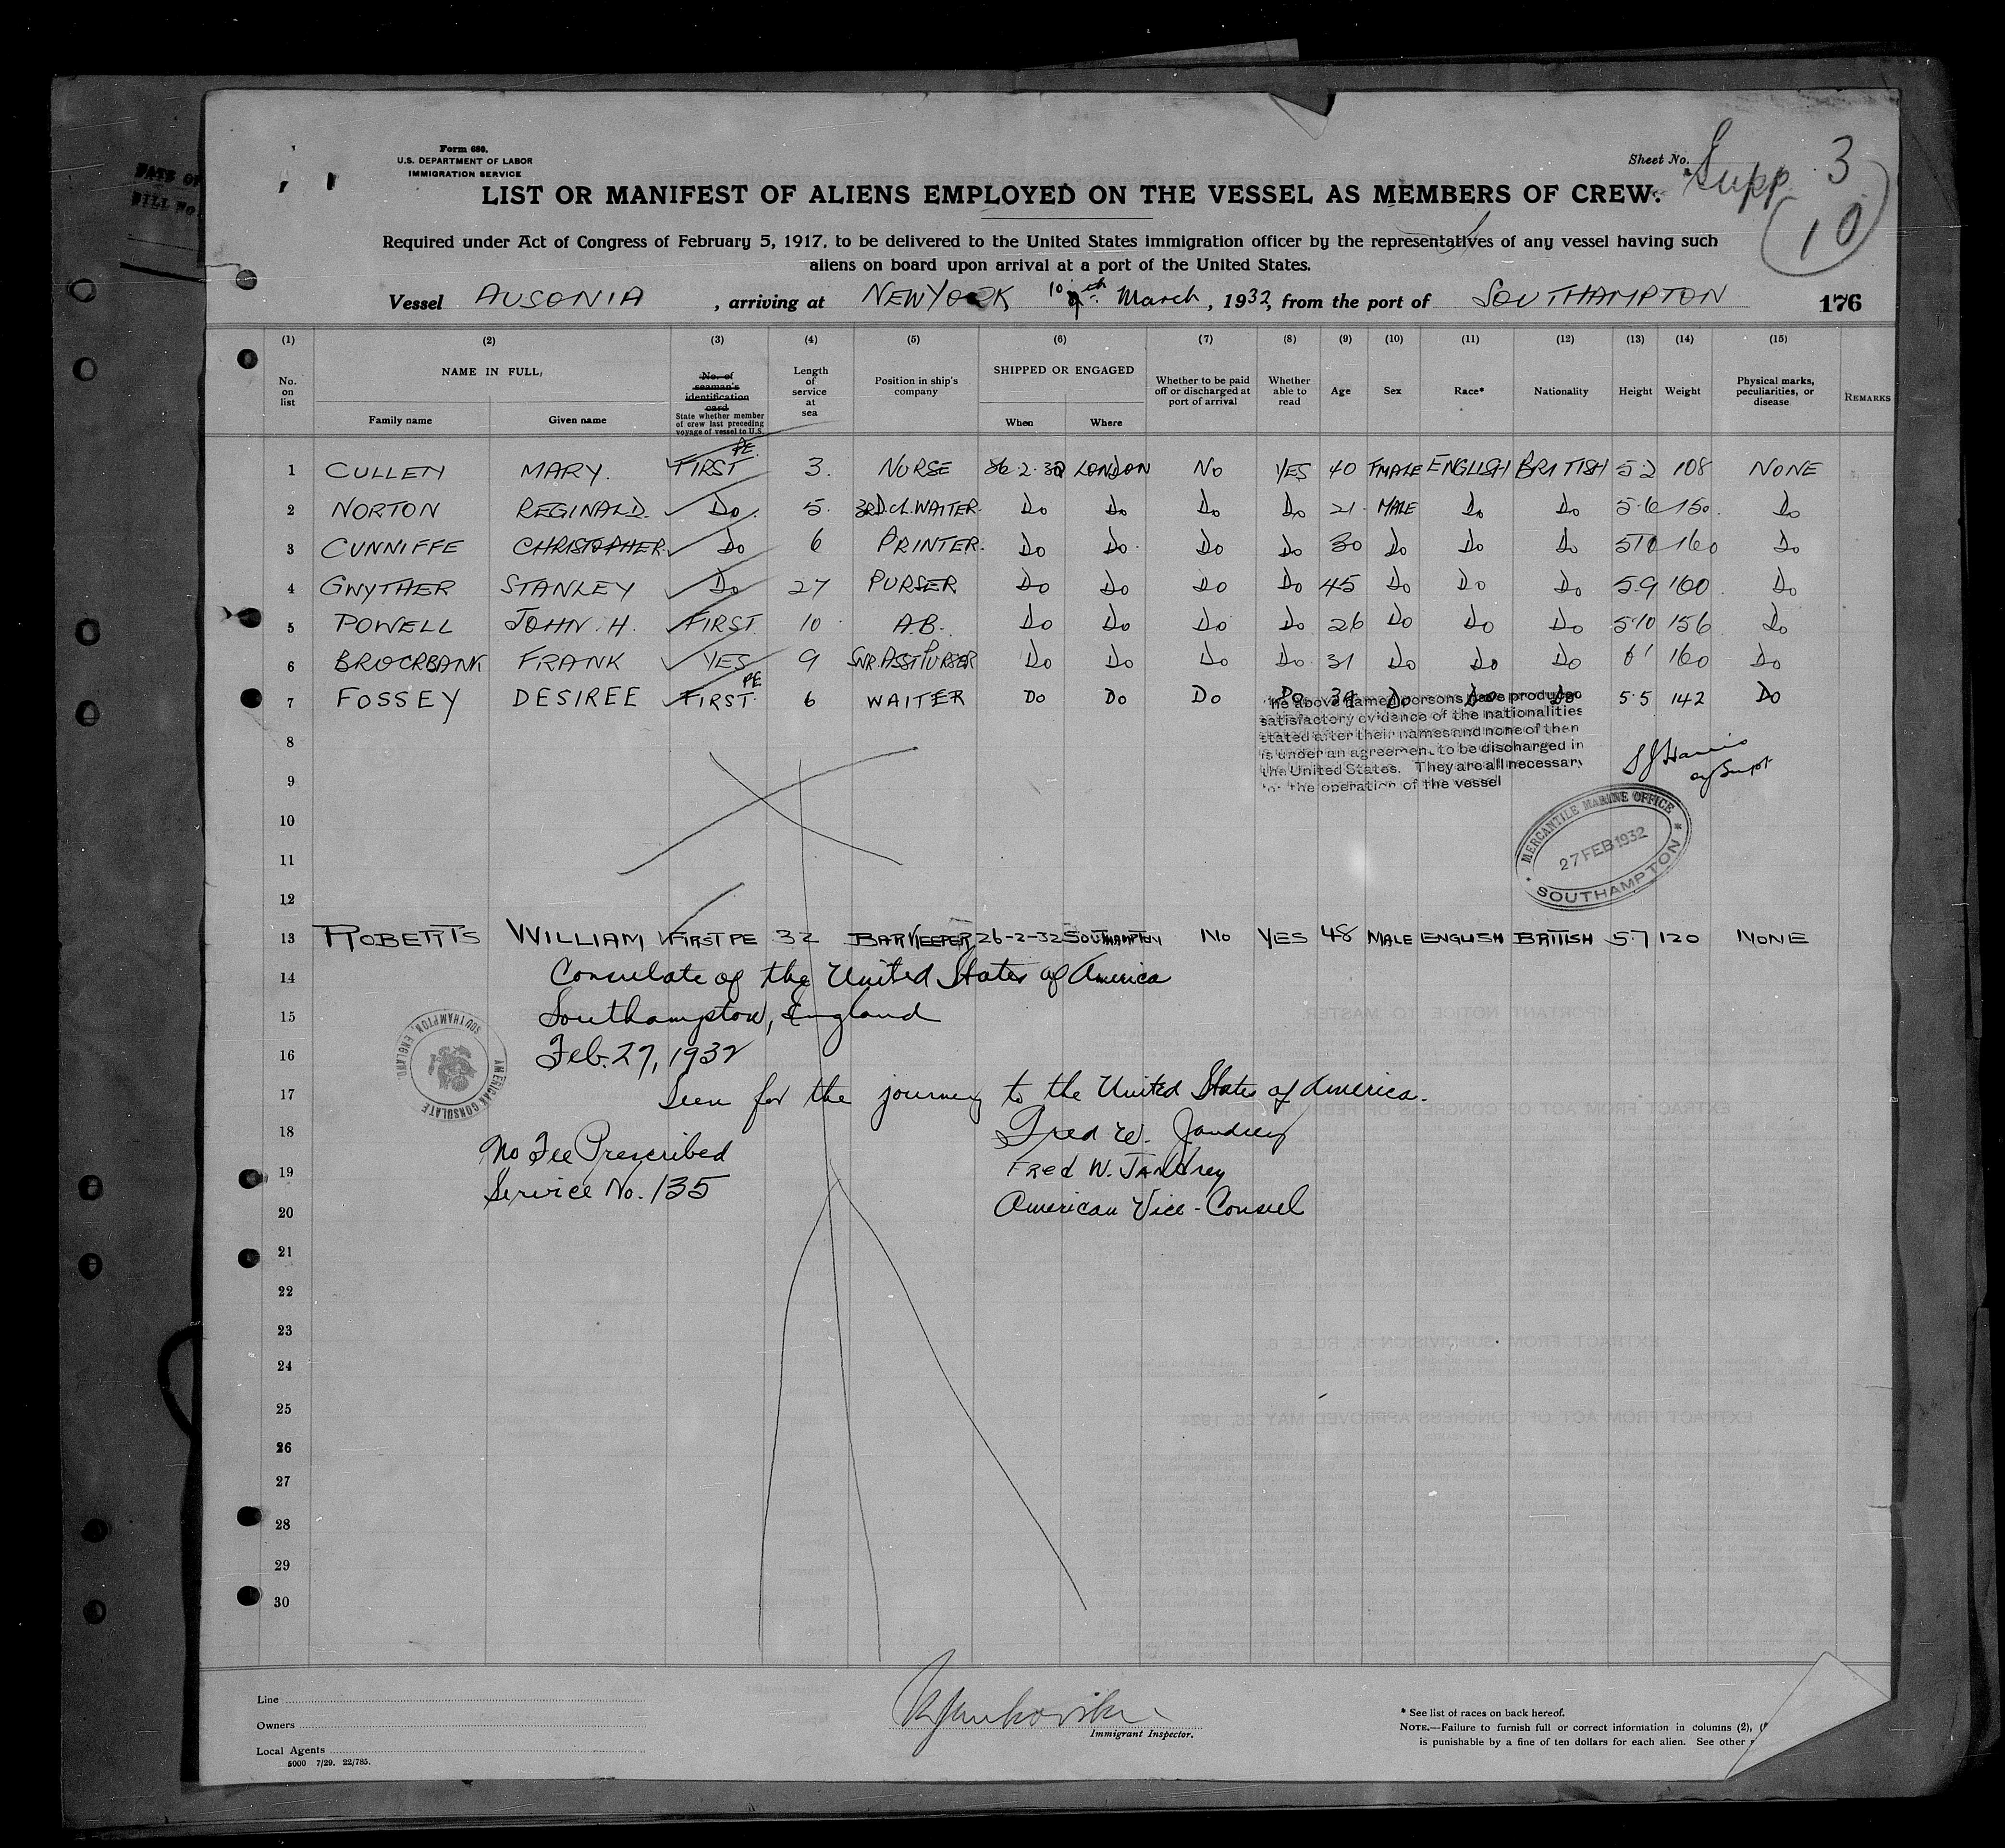 Form 680.
U.S. DEPARTMENT OF LABOR
IMMIGRATION SERVICE
Sheet No. Supp. 3
10
LIST OR MANIFEST OF ALIENS EMPLOYED ON THE VESSEL AS MEMBERS OF CREW.
Required under Act of Congress of February 5, 1917, to be delivered to the United States immigration officer by the representatives of any vessel having such
aliens on board upon arrival at a port of the United States.
Vessel AUSONIA, arriving at NEW YORK 10th March, 1932, from the port of SOUTHAMPTON 176
(1) (2) (3) (4) (5) (6) (7) (8) (9) (10) (11) (12) (13) (14) (15)
No. on list
NAME IN FULL,
Family name Given name
No. of seaman's identification card
State whether member of crew last preceding voyage of vessel to U.S.
Length of service at sea
Position in ship's company
SHIPPED OR ENGAGED
When Where
Whether to be paid off or discharged at port of arrival
Whether able to read
Age Sex Race* Nationality Height Weight
Physical marks, peculiarities, or disease
REMARKS
1 CULLEN MARY. FIRST PE. 3. NURSE 26.2.32 LONDON NO YES 40 FMALE ENGLISH BRITISH 5.2 108 NONE
2 NORTON REGINALD. Do. 5. 3RD.CL.WAITER. Do Do Do Do 21. MALE Do Do 5.6 150. Do
3 CUNNIFFE CHRISTOPHER. Do 6 PRINTER. Do Do. Do Do 30 Do Do Do 5.10 160 Do
4 GWYTHER STANLEY Do 27 PURSER Do Do Do Do 45 Do Do Do 5.9 160. Do
5 POWELL JOHN.H. FIRST. 10 A.B. Do Do Do Do 26 Do Do Do 5.10 156 Do
6 BROCKBANK FRANK YES 9 SNR.ASST PURSER Do Do Do Do 31 Do Do Do 6' 160 Do
7 FOSSEY DESIREE FIRST. PE 6 WAITER DO DO DO DO DO DO DO 5.5 142 DO
he above named persons have produced
satisfactory evidence of the nationalities
stated after their names and none of then
is under an agreement to be discharged in
the United States. They are all necessary
for the operation of the vessel
8
9
10
11
12
MERCANTILE MARINE OFFICE
27 FEB 1932
SOUTHAMPTON
13 ROBERTS WILLIAM FIRST PE 32 BARKEEPER 26-2-32 SOUTHAMPTON NO YES 48 MALE ENGLISH BRITISH 5.7 120 NONE
14 Consulate of the United States of America
15 Southampton, England
16 Feb. 27, 1932
AMERICAN CONSULATE
SOUTHAMPTON, ENGLAND
17 Seen for the journey to the United States of America.
18 Fred W. Jandrey
No Fee Prescribed
19 Fred W. Jandrey
Service No. 135
20 American Vice-Consul
21
22
23
24
25
26
27
28
29
30
Line
Owners
Local Agents
5000 7/29. 22/785.
Immigrant Inspector.
* See list of races on back hereof.
NOTE.—Failure to furnish full or correct information in columns (2),
is punishable by a fine of ten dollars for each alien. See other